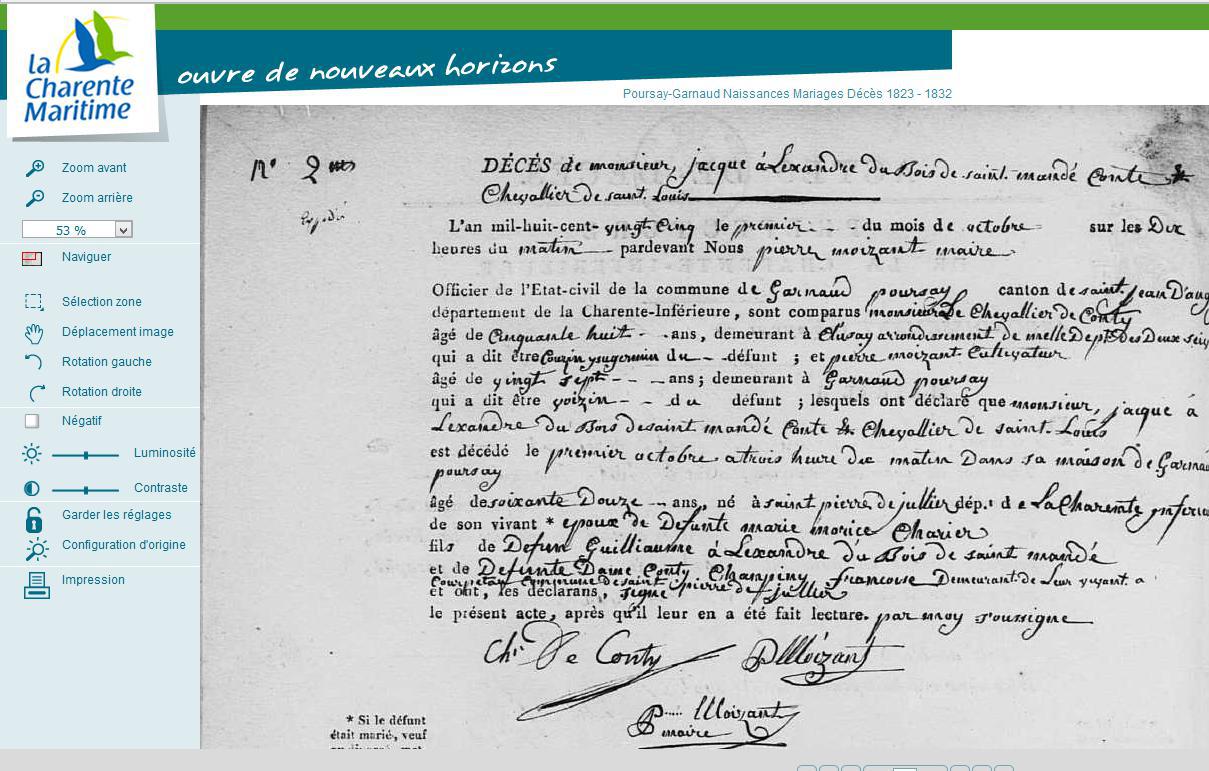 la
Charente
Maritime
ouvre de nouveaux horizons
Poursay-Garnaud Naissances Mariages Décès 1823 - 1832
Zoom avant
Zoom arrière
53 %
Naviguer
Sélection zone
Déplacement image
Rotation gauche
Rotation droite
Négatif
Luminosité
Contraste
Garder les réglages
Configuration d'origine
Impression
N° 2
DÉCÈS de monsieur, jacque áLexandre du Bois de saint. mandé Conte &
Chevallier de saint. Louis
expedié
L'an mil-huit-cent- vingt Cinq le premier - - du mois de octobre sur les Dix
heures du matin pardevant Nous pierre moizant maire
Officier de l'Etat-civil de la commune de Garnaud poursay canton de saint. Jean D'ang
département de la Charente-Inférieure, sont comparus monsieur Le Chevallier de Conty
âgé de Cinquante huit - - ans, demeurant à Clusay arrondissement de melle Dept. Des Deux sev
qui a dit être Couzin yssugermin du - - défunt ; et pierre moizant Cultivateur
âgé de vingt sept - - - ans ; demeurant à Garnaud poursay
qui a dit être voizin - - du défunt ; lesquels ont déclaré que monsieur, jacque á
Lexandre du Bois de saint mandé Conte & Chevallier de saint. Louis
est décédé le premier octobre a trois heure du matin Dans sa maison de Garnau
poursay
âgé de soixante Douze - ans, né à saint pierre de jullier dép.t de La Charente ynferieu
de son vivant * epoux de Defunte marie morice Charier
fils de Defun Guilliaume á Lexandre du Bois de saint mandé
et de Defunte Dame Conty Champiny francoise Demeurant de Leur vyvant a
Courpetau Commune de saint pierre de jullier
et ont, les déclarans, signé
le présent acte, après qu'il leur en a été fait lecture. par moy soussigne
Ch.r De Conty P Moizant
P Moizant
maire
* Si le défunt
était marié, veuf